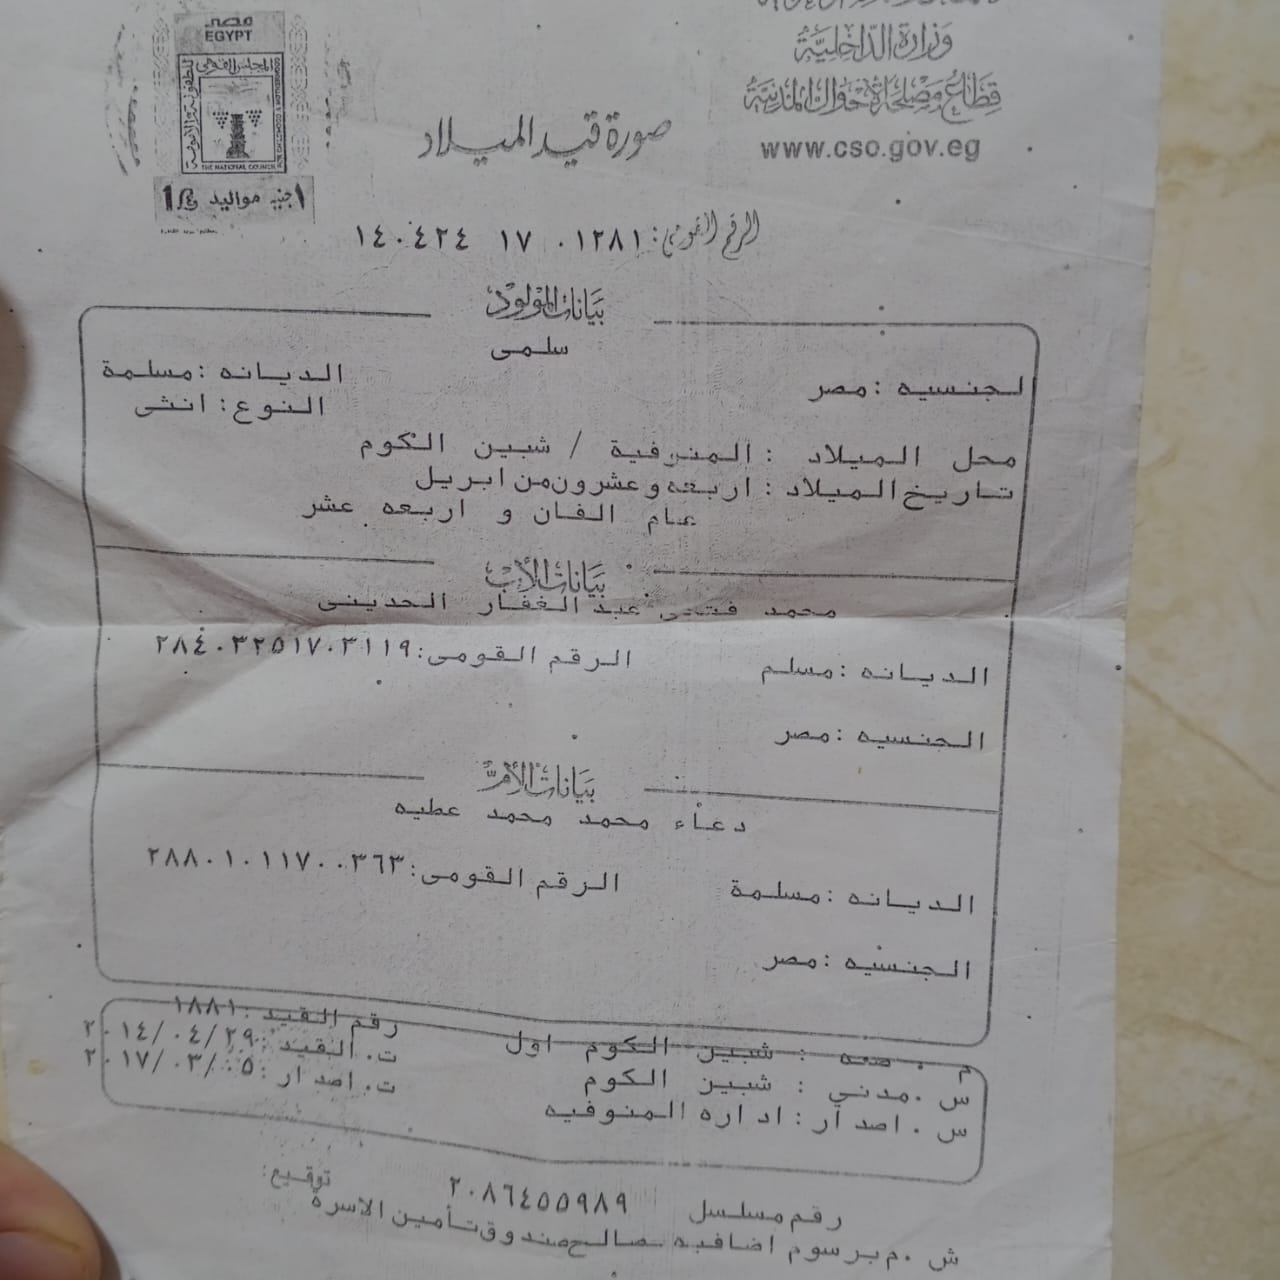 وزارة الداخلية
قطاع مصلحة الأحوال المدنية
www.cso.gov.eg
مصر
EGYPT
المجلس القومى
للطفولة والأمومة
THE NATIONAL COUNCIL FOR CHILDHOOD & MOTHERHOOD
١ جنيه مواليد ج١
صورة قيد الميلاد
الرقم القومى: ١٤٠٤٢٤ ١٧ ٠١٢٨١
بيانات المولود
سلمى
لجنسيه : مصر
الديانه : مسلمة
النوع : انثى
محل الميلاد : المنوفية / شبين الكوم
تاريخ الميلاد : اربعه وعشرون من ابريل
عام الفان و اربعه عشر
بيانات الأب
محمد فتحى عبد الغفار الحدينى
الديانه : مسلم الرقم القومى: ٢٨٤٠٣٢٥١٧٠٣١١٩
الجنسيه : مصر
بيانات الأم
دعاء محمد محمد عطيه
الديانه : مسلمة الرقم القومى: ٢٨٨٠١٠١١٧٠٠٣٦٣
الجنسيه : مصر
م . صحه : شبين الكوم اول رقم القيد : ١٨٨١
س . مدني : شبين الكوم ت. القيد : ٢٠١٤/٠٤/٢٩
س . اصدار : اداره المنوفيه ت. اصدار : ٢٠١٧/٠٣/٠٥
رقم مسلسل ٢٠٨٦٤٥٥٩٨٩ توقيع:
ش . م برسوم اضافيه لصالح صندوق تأمين الاسرة